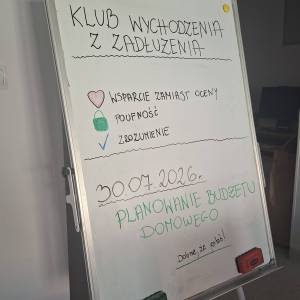 KLUB WYCHODZENIA
Z ZADŁUŻENIA
WSPARCIE ZAMIAST OCENY
POUFNOŚĆ
ZROZUMIENIE
30.07.2026r.
PLANOWANIE BUDŻETU
DOMOWEGO